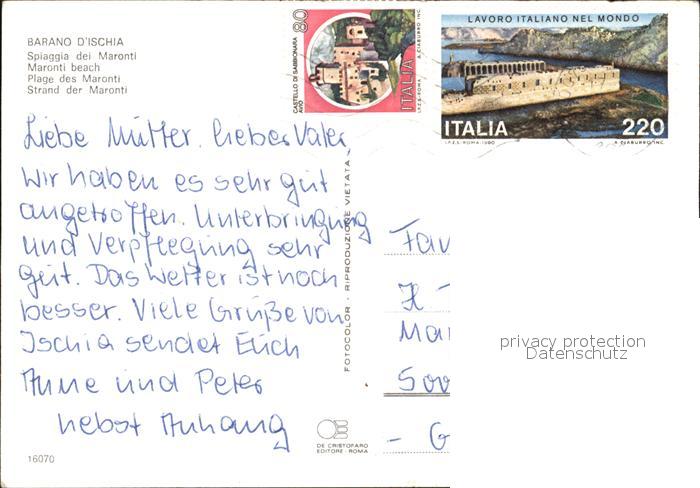 BARANO D'ISCHIA
Spiaggia dei Maronti
Maronti beach
Plage des Maronti
Strand der Maronti
80
CASTELLO DI SABBIONARA
AVIO
ITALIA
I.P.Z.S. ROMA
A. CIABURRO INC.
LAVORO ITALIANO NEL MONDO
ITALIA 220
I.P.Z.S. ROMA-1980 A. CIABURRO INC.
Liebe Mutter, lieber Vater,
Wir haben es sehr gut
angetroffen. Unterbringung
und Verpflegung sehr
gut. Das Wetter ist noch
besser. Viele Grüße von
Ischia sendet Euch
Anne und Peter
nebst Anhang
FOTOCOLOR - RIPRODUZIONE VIETATA
Fam
H
Mar
500
- G
privacy protection
Datenschutz
DE CRISTOFARO
EDITORE - ROMA
16070